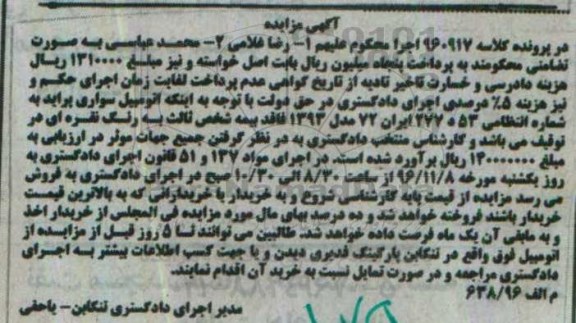 آگهی مزایده
در پرونده کلاسه ۹۶۰۹۱۷ اجرا محکوم علیهم ۱- رضا غلامی ۲- محمد عباسی به صورت
تضامنی محکومند به پرداخت پنجاه میلیون ریال بابت اصل خواسته و نیز مبلغ ۱۳۱۰۰۰۰ ریال
هزینه دادرسی و خسارت تاخیر تادیه از تاریخ گواهی عدم پرداخت لغایت زمان اجرای حکم و
نیز هزینه ۵٪ درصدی اجرای دادگستری در حق دولت با توجه به اینکه اتومبیل سواری پراید به
شماره انتظامی ۵۳ د ۲۷۷ ایران ۷۲ مدل ۱۳۹۳ فاقد بیمه شخص ثالث به رنگ نقره ای در
توقیف می باشد و کارشناس منتخب دادگستری به در نظر گرفتن جمیع جهات موثر در ارزیابی به
مبلغ ۱۴۰۰۰۰۰۰۰ ریال برآورد شده است. در اجرای مواد ۱۳۷ و ۵۱ قانون اجرای دادگستری به
روز یکشنبه مورخه ۹۶/۱۱/۸ از ساعت ۸/۳۰ الی ۱۰/۳۰ صبح در اجرای دادگستری به فروش
می رسد مزایده از قیمت پایه کارشناسی شروع و به خریدار یا خریدارانی که به بالاترین قیمت
خریدار باشند فروخته خواهد شد و ده درصد بهای مال مورد مزایده فی المجلس از خریدار اخذ
و به مابقی آن یک ماه فرصت داده خواهد شد. طالبین می توانند تا ۵ روز قبل از مزایده از
اتومبیل فوق واقع در تنکابن پارکینگ قدیری دیدن و یا جهت کسب اطلاعات بیشتر به اجرای
دادگستری مراجعه و در صورت تمایل نسبت به خرید آن اقدام نمایند.
م الف ۶۳۸/۹۶
مدیر اجرای دادگستری تنکابن- یاحقی